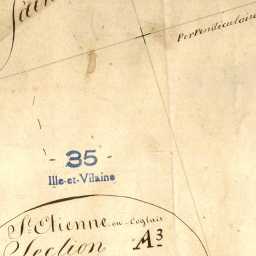 Perpendiculaire
- 35 -
Ille-et-Vilaine
St. Etienne en Coglais
Section A3